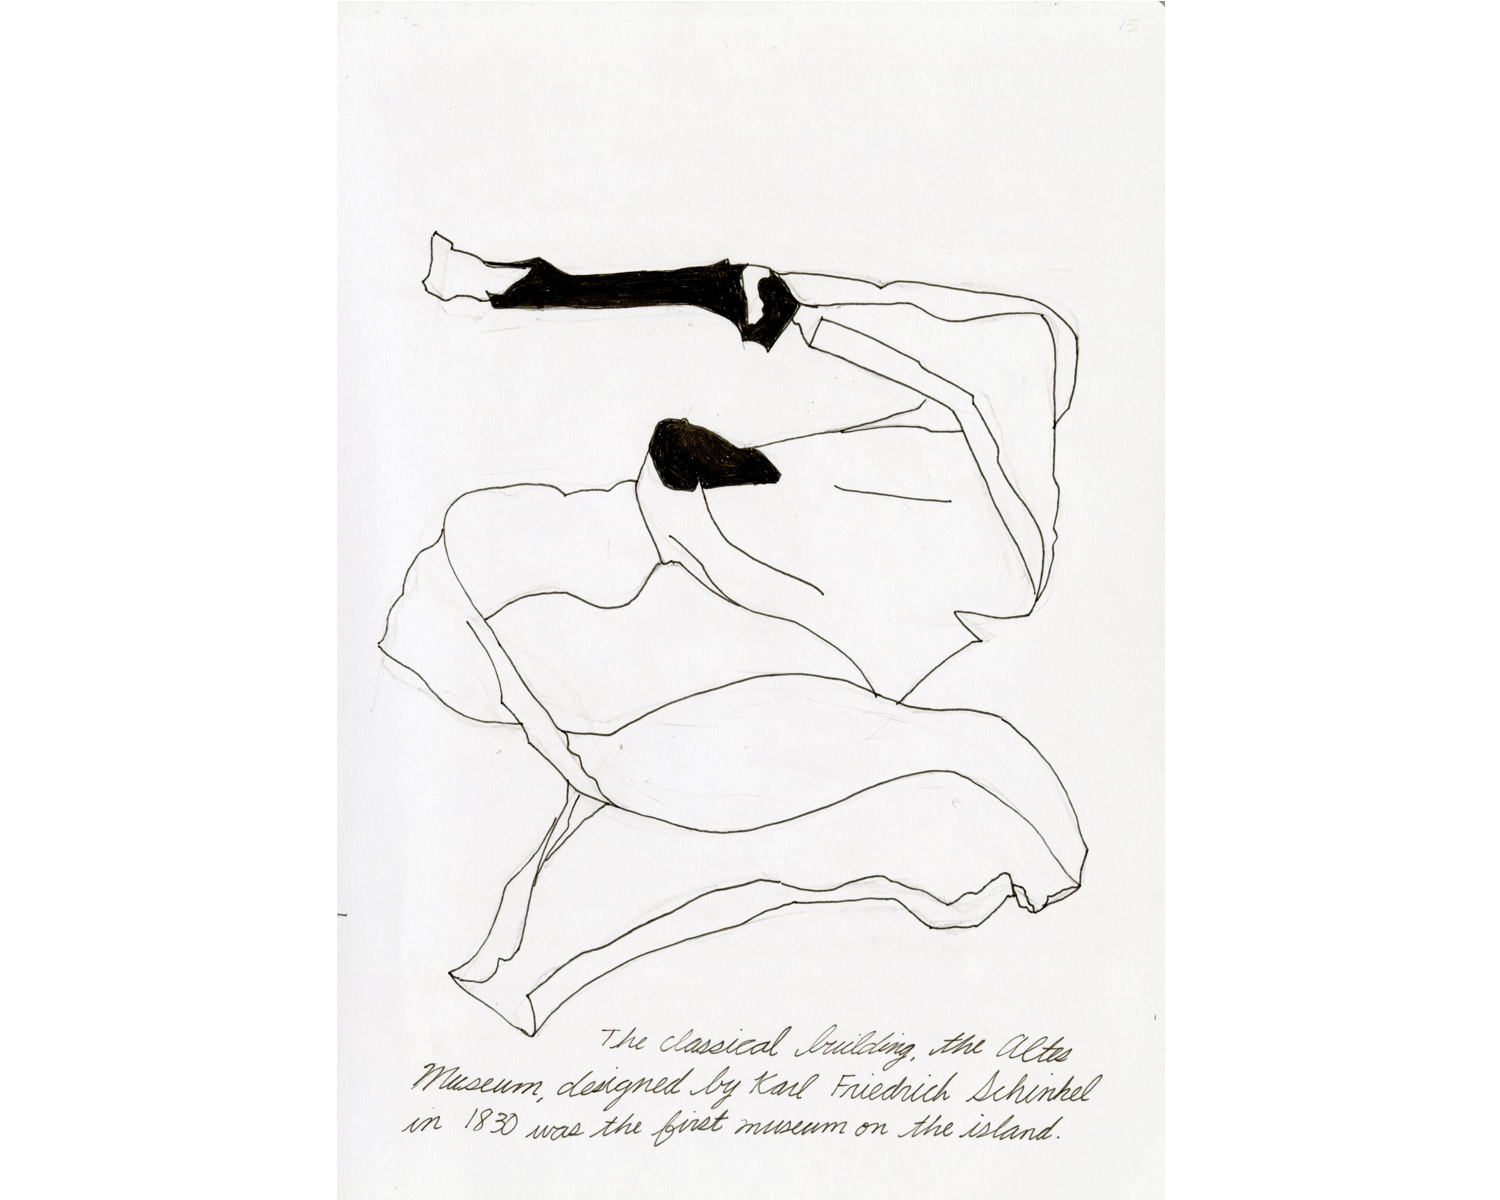 15
The classical building, the Altes
Museum, designed by Karl Friedrich Schinkel
in 1830 was the first museum on the island.